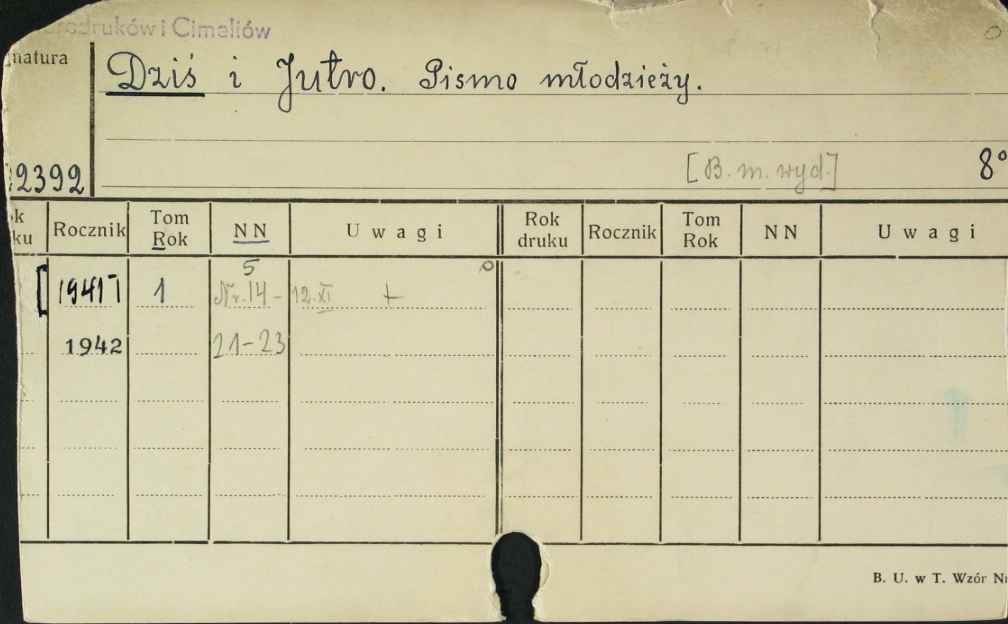 i Cimeliów
natura
Dziś i Jutro. Pismo młodzieży.
2392
[B. m. wyd.] 8°
Rocznik Tom Rok NN Uwagi Rok druku Rocznik Tom Rok NN Uwagi
5
[1941] 1 Nr. 14 - 12.XI +
1942 21-23
B. U. w T. Wzór